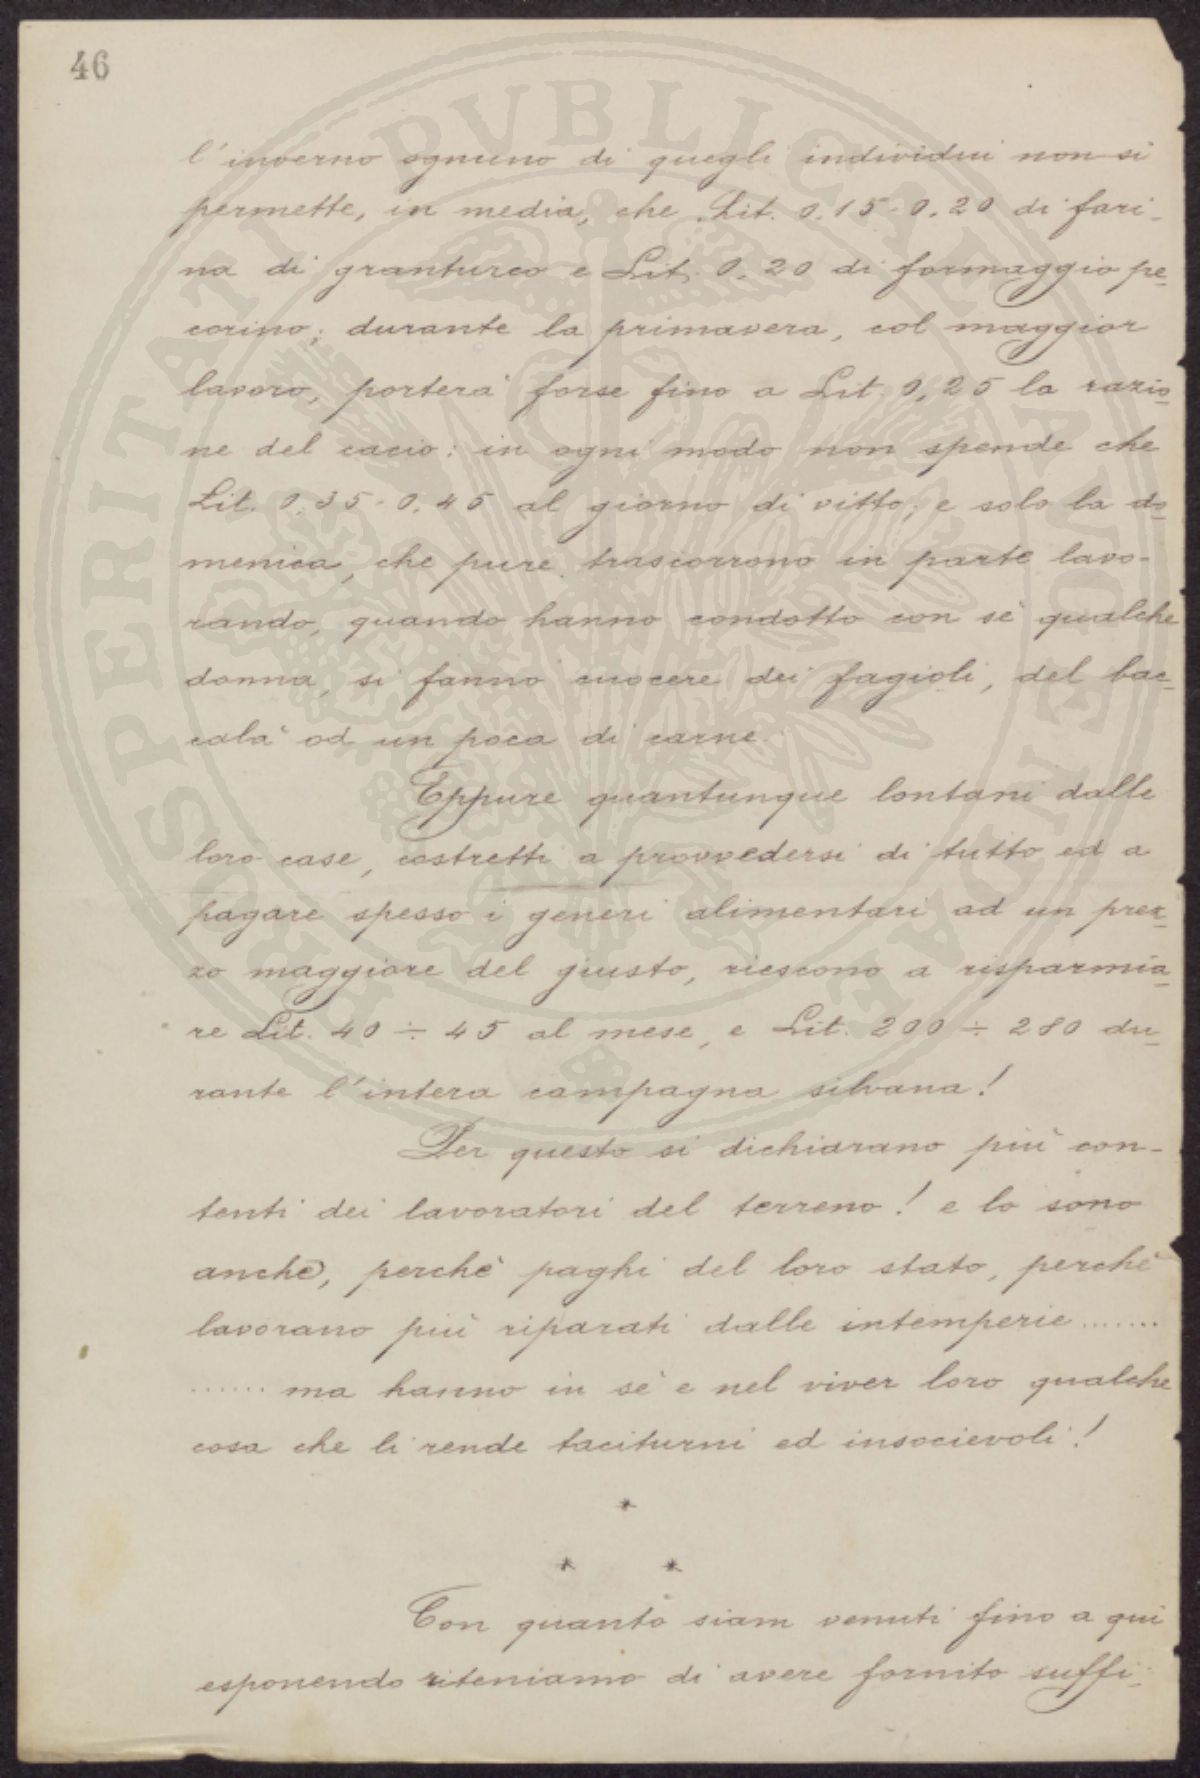 46
PROSPERITATI PVBLICAE AVGENDAE
l'inverno ognuno di quegli individui non si
permette, in media, che Lit. 0.15-0.20 di fari-
na di granturco e Lit. 0.20 di formaggio pe-
corino; durante la primavera, col maggior
lavoro, porterà forse fino a Lit. 0,25 la razio-
ne del cacio: in ogni modo non spende che
Lit. 0.35-0.45 al giorno di vitto; e solo la do-
menica, che pure trascorrono in parte lavo-
rando, quando hanno condotto con sè qualche
donna, si fanno cuocere dei fagioli, del bac-
calà od un poca di carne.
Eppure quantunque lontani dalle
loro case, costretti a provvedersi di tutto ed a
pagare spesso i generi alimentari ad un prez-
zo maggiore del giusto, riescono a risparmia-
re Lit. 40 ÷ 45 al mese, e Lit. 200 ÷ 280 du-
rante l'intera campagna silvana!
Per questo si dichiarano più con-
tenti dei lavoratori del terreno! e lo sono
anche, perchè paghi del loro stato, perchè
lavorano più riparati dalle intemperie.......
...... ma hanno in sè e nel viver loro qualche
cosa che li rende taciturni ed insocievoli!
*
* *
Con quanto siam venuti fino a qui
esponendo riteniamo di avere fornito suffi-